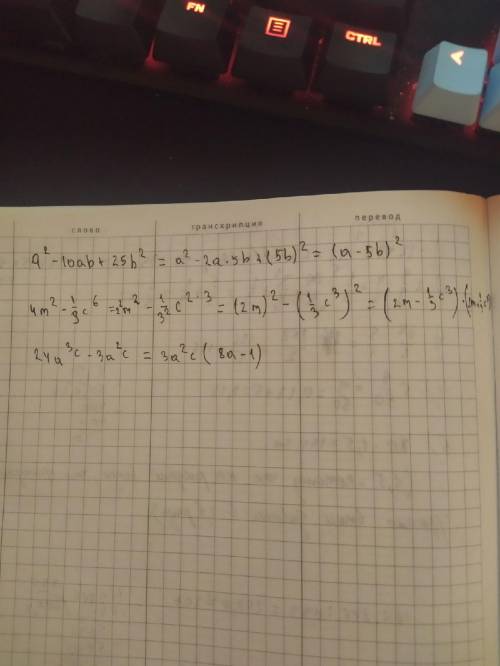 FN
CTRL
<
слово транскрипция перевод
a² - 10ab + 25b² = a² - 2a·5b + (5b)² = (a - 5b)²
4m² - 1/9 c⁶ = 2²m² - 1/3² c²·³ = (2m)² - (1/3 c³)² = (2m - 1/3 c³)·(2m + 1/3 c³)
24a³c - 3a²c = 3a²c (8a - 1)